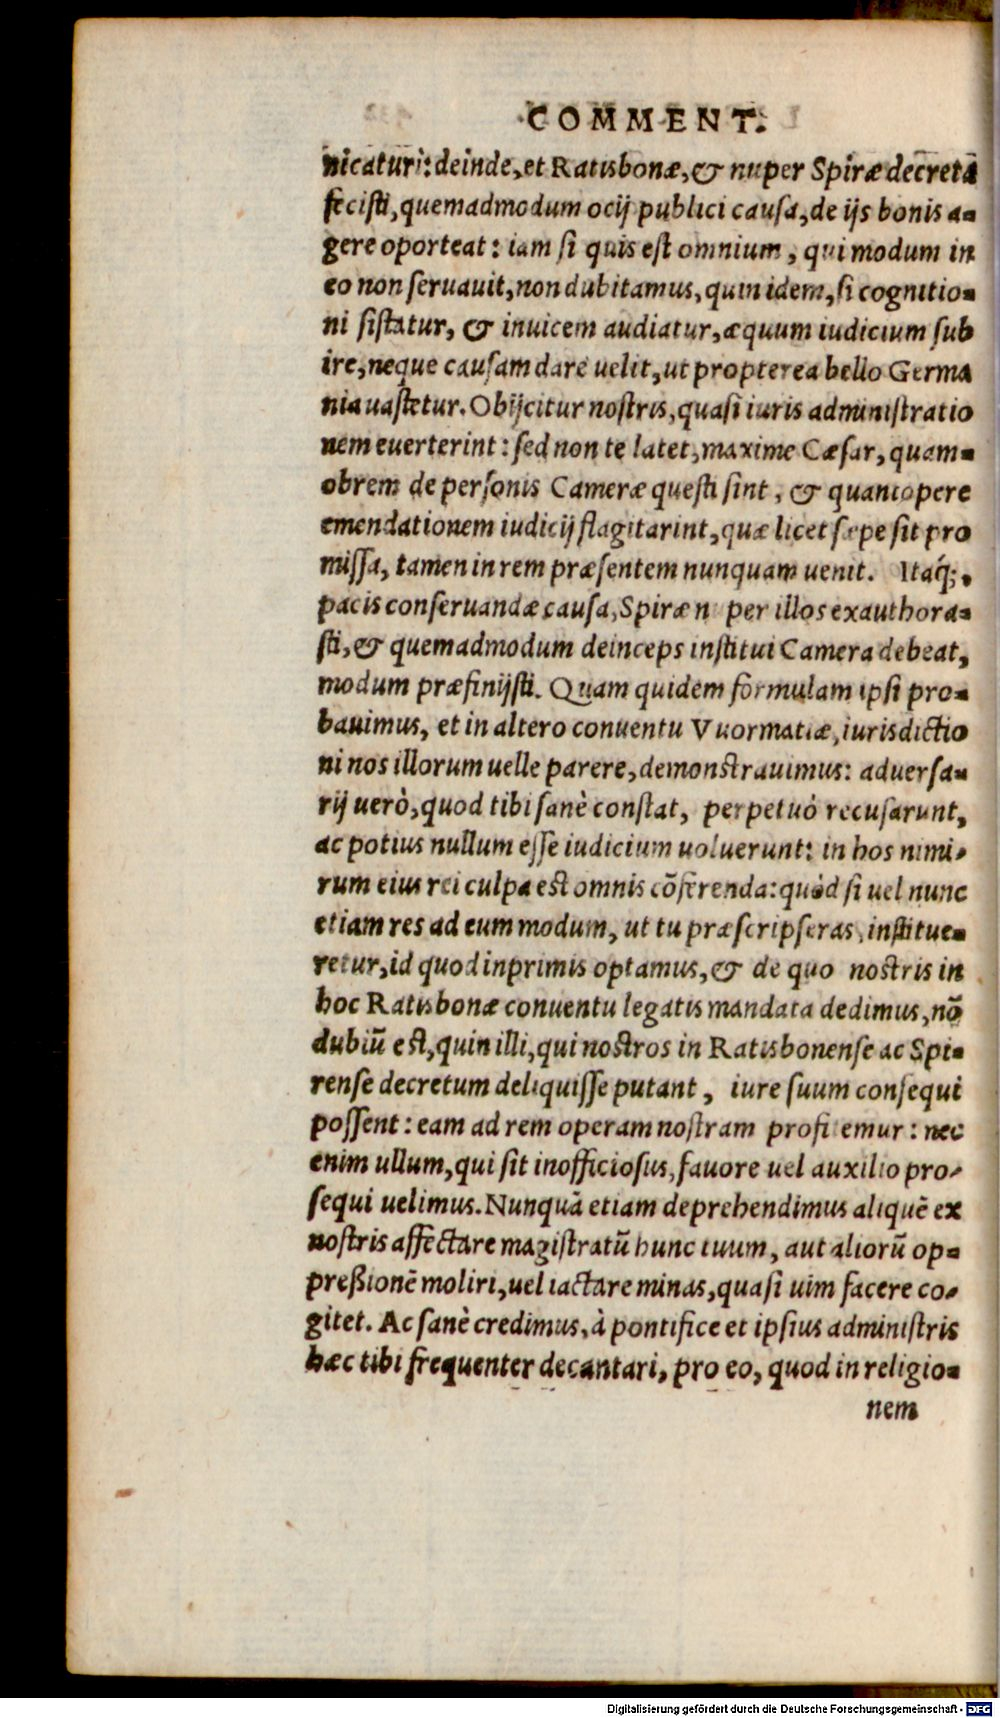 COMMENT.
nicaturi: deinde, et Ratisbonæ, & nuper Spiræ decreta
fecisti, quemadmodum ocij publici causa, de ijs bonis a-
gere oporteat: iam si quis est omnium, qui modum in
eo non seruauit, non dubitamus, quin idem, si cognitio-
ni sistatur, & inuicem audiatur, æquum iudicium sub
ire, neque causam dare uelit, ut propterea bello Germa
nia uastetur. Obijcitur nostris, quasi iuris administratio
nem euerterint: sed non te latet, maxime Cæsar, quam-
obrem de personis Cameræ questi sint, & quantopere
emendationem iudicij flagitarint, quæ licet sæpe sit pro
missa, tamen in rem præsentem nunquam uenit. Itaq́;,
pacis conseruandæ causa, Spiræ nuper illos exauthora-
sti, & quemadmodum deinceps institui Camera debeat,
modum præfinijsti. Quam quidem formulam ipsi pro-
bauimus, et in altero conuentu Vuormatiæ, iurisdictio
ni nos illorum uelle parere, demonstrauimus: aduersa-
rij uerò, quod tibi sanè constat, perpetuò recusarunt,
ac potius nullum esse iudicium uoluerunt: in hos nimi-
rum eius rei culpa est omnis cōferenda: quòd si uel nunc
etiam res ad eum modum, ut tu præscripseras, institue-
retur, id quod inprimis optamus, & de quo nostris in
hoc Ratisbonæ conuentu legatis mandata dedimus, nō
dubiū est, quin illi, qui nostros in Ratisbonense ac Spi-
rense decretum deliquisse putant, iure suum consequi
possent: eam ad rem operam nostram profitemur: nec
enim ullum, qui sit inofficiosus, fauore uel auxilio pro-
sequi uelimus. Nunquā etiam deprehendimus aliquē ex
nostris affectare magistratū hunc tuum, aut aliorū op-
preßionē moliri, uel iactare minas, quasi uim facere co-
gitet. Ac sanè credimus, à pontifice et ipsius administris
hæc tibi frequenter decantari, pro eo, quod in religio-
nem
Digitalisierung gefördert durch die Deutsche Forschungsgemeinschaft - DFG